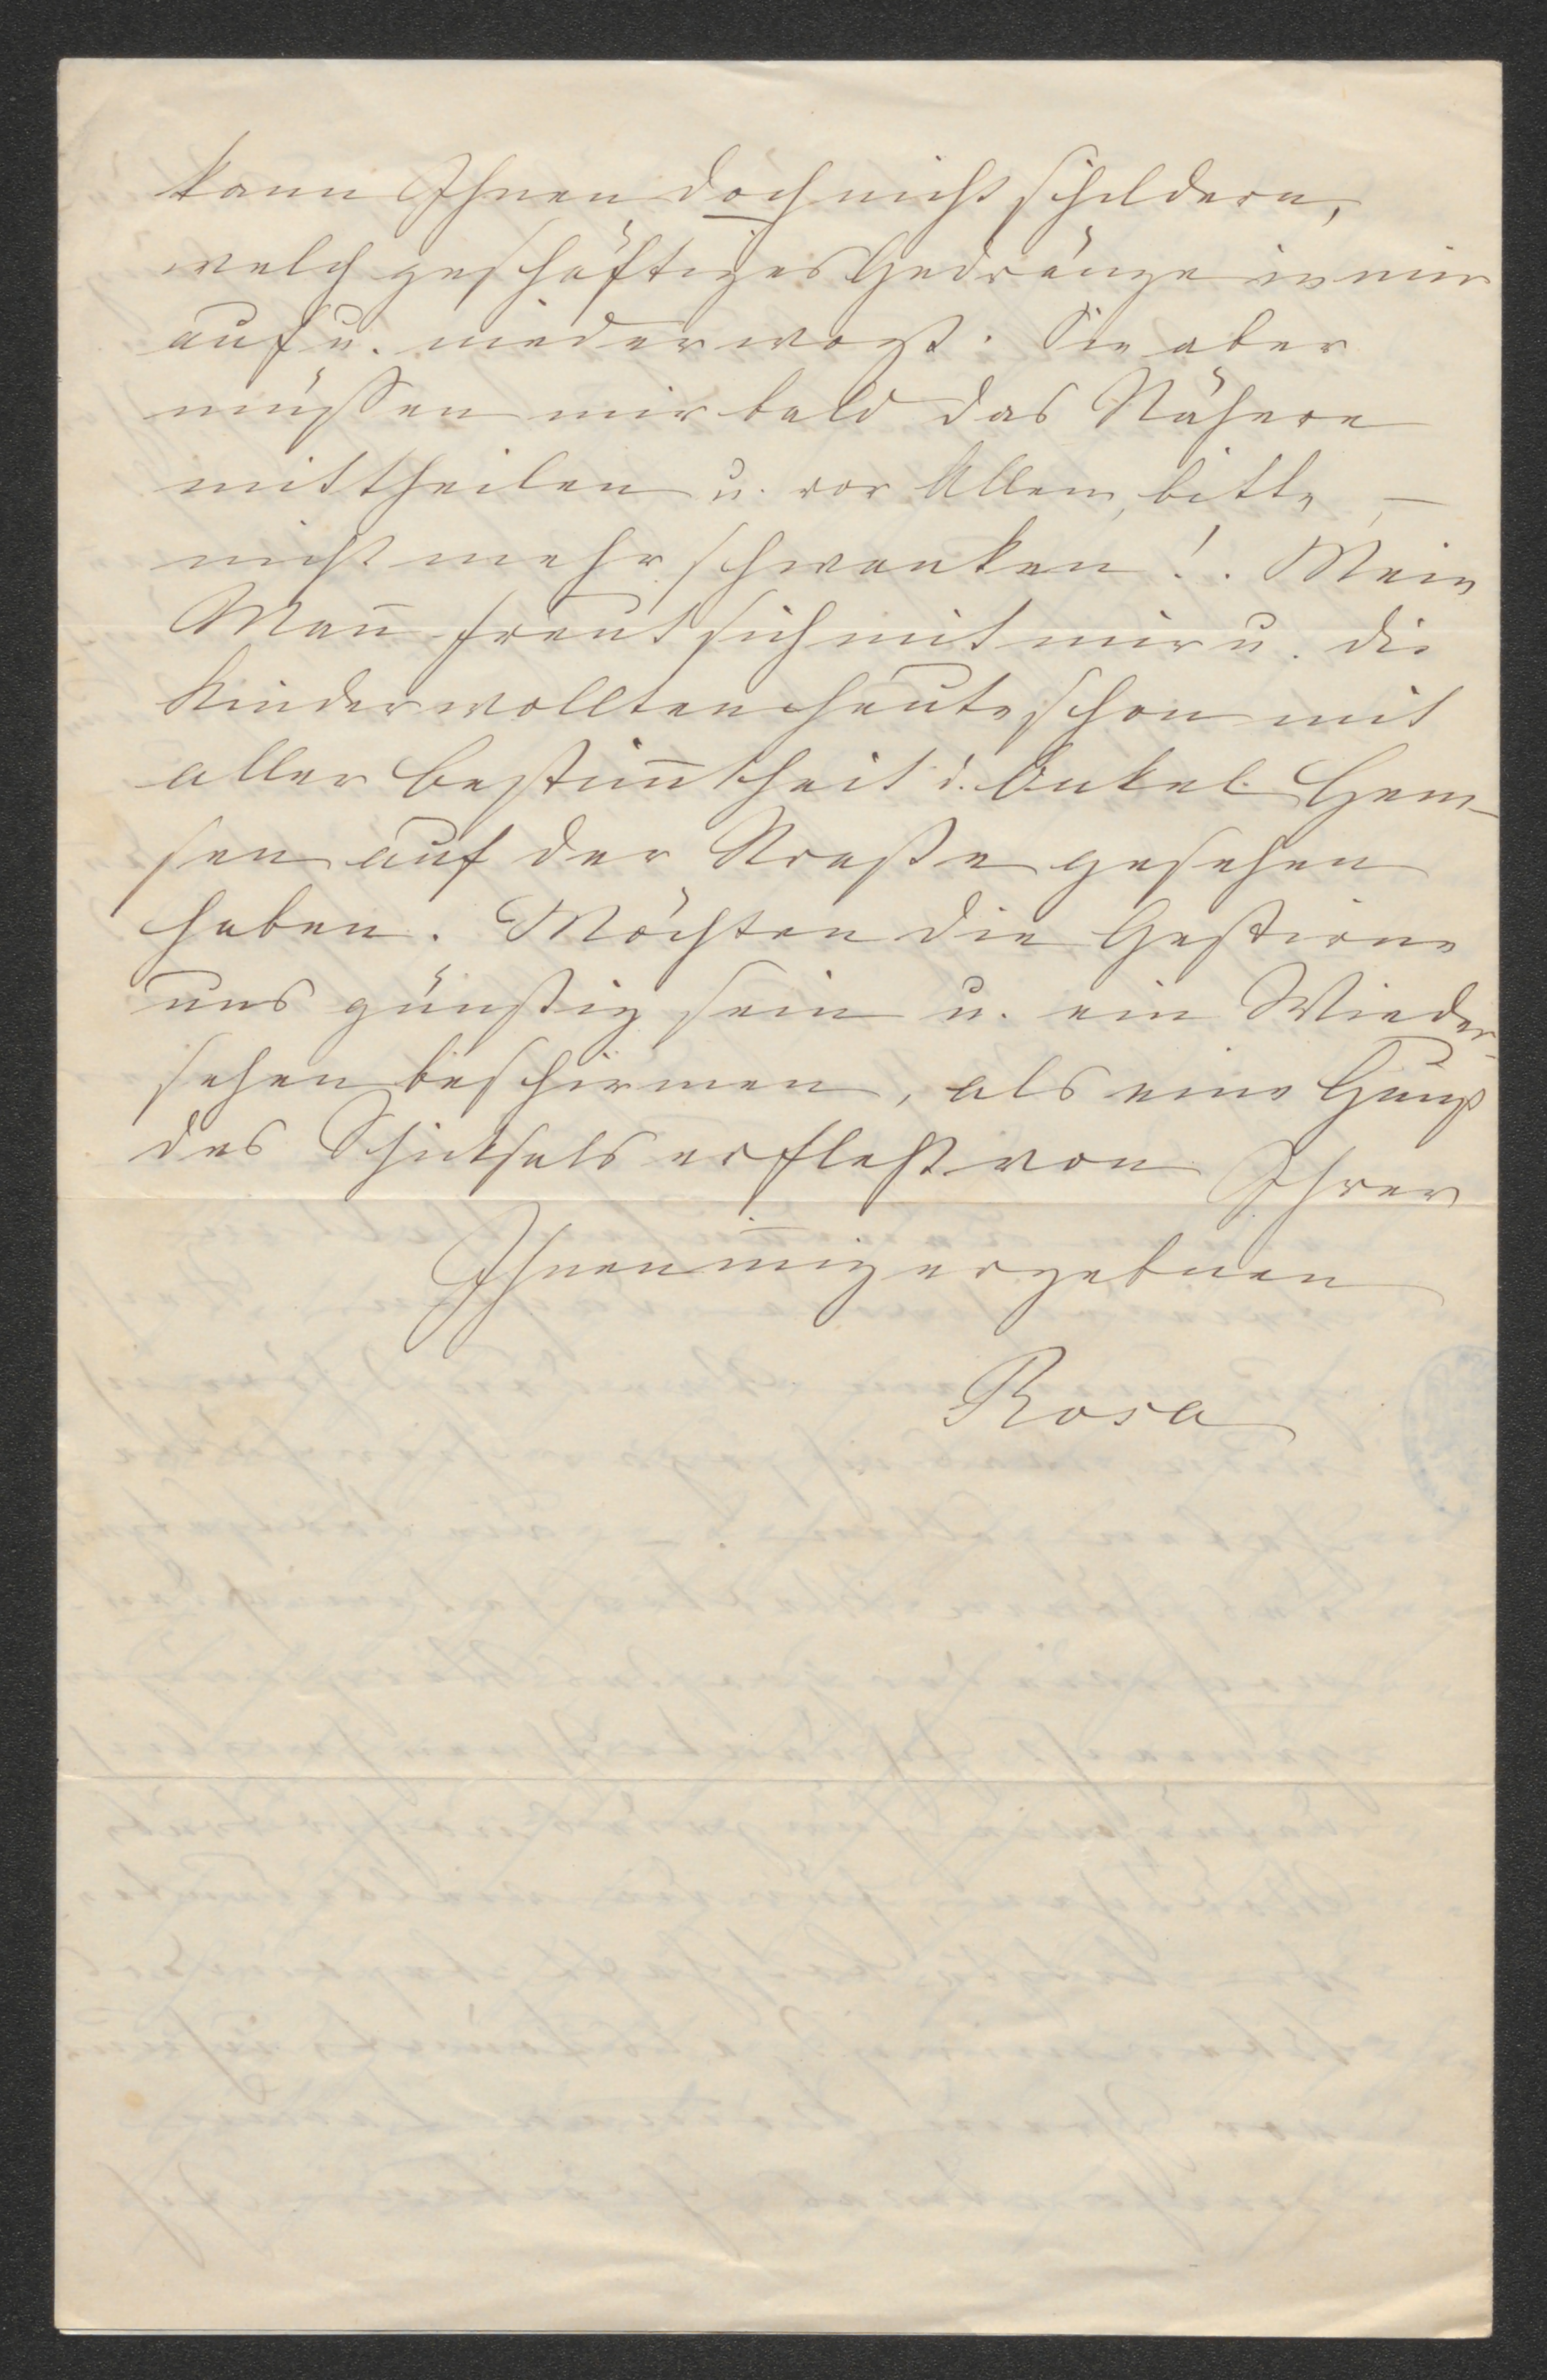 kann Ihnen doch nicht schildern,
welch geschäftiges Gedränge in mir
auf u. niederwogt. Sie aber
müssen mir bald das Nähere
mittheilen u. vor Allem, bitte, —
nicht mehr schwanken!. Mein
Man̄ freut sich mit mir u. die
Kinder wollten heute schon mit
aller Bestim̄theit d. Onkel Hem-
sen auf der Straße gesehen
haben. Möchten die Gestirne
uns günstig sein u. ein Wieder-
sehen beschirmen, als eine Gunst
des Schicksals erfleht von Ihrer
Ihnen in̄ig ergebnen
Rosa